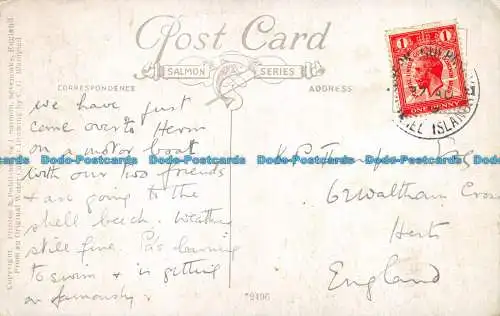 Post Card
SALMON SERIES
CORRESPONDENCE
ADDRESS
Copyright. Printed & Published by J. Salmon, Sevenoaks, England.
From an Original Water Colour Drawing by
we have just
come over to Herm
on a motor boat
with our two friends
& are going to the
shell beech. Weather
still fine. Pa's learning
to swim & is getting
on famously.
Esq
62 Waltham Cross
Herts
England
1 1
ONE PENNY
ISLANDS
*2496
Dodo-Postcards Dodo-Postcards Dodo-Postcards Dodo-Postcards Dodo-Postcards